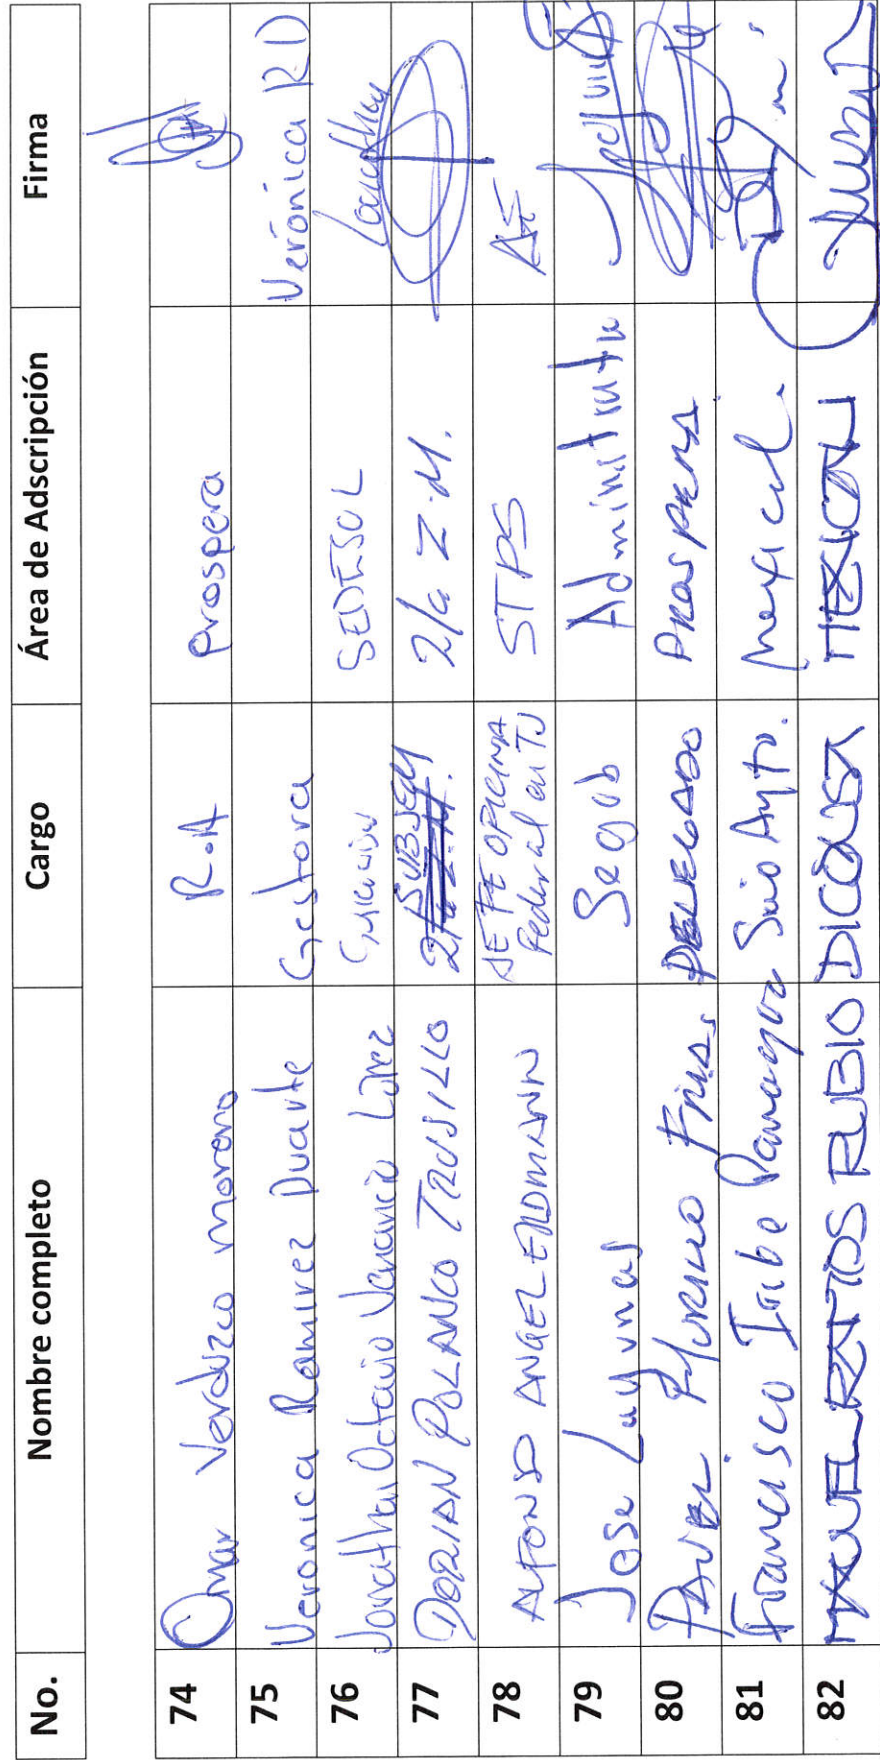 No. Nombre completo Cargo Área de Adscripción Firma
74 Omar Verduzco moreno R.A prospera
75 Veronica Ramirez Duarte Gestora Verónica RD
76 Jonathan Octavio Venancio López SEDESOL
77 DORIAN POLANCO TRUJILLO 2/a Z.M.
78 ALFONSO ANGEL ERDMANN JEFE OFICINA Federal en TJ STPS AE
79 Jose Lagunas Segob
80 PAVEL MORENO FRIAS DELEGADO PROSPERA
81 Francisco Iribe Paniagua Srio Ayto. Mexicali
82 MANUEL RAMOS RUBIO DICONSA